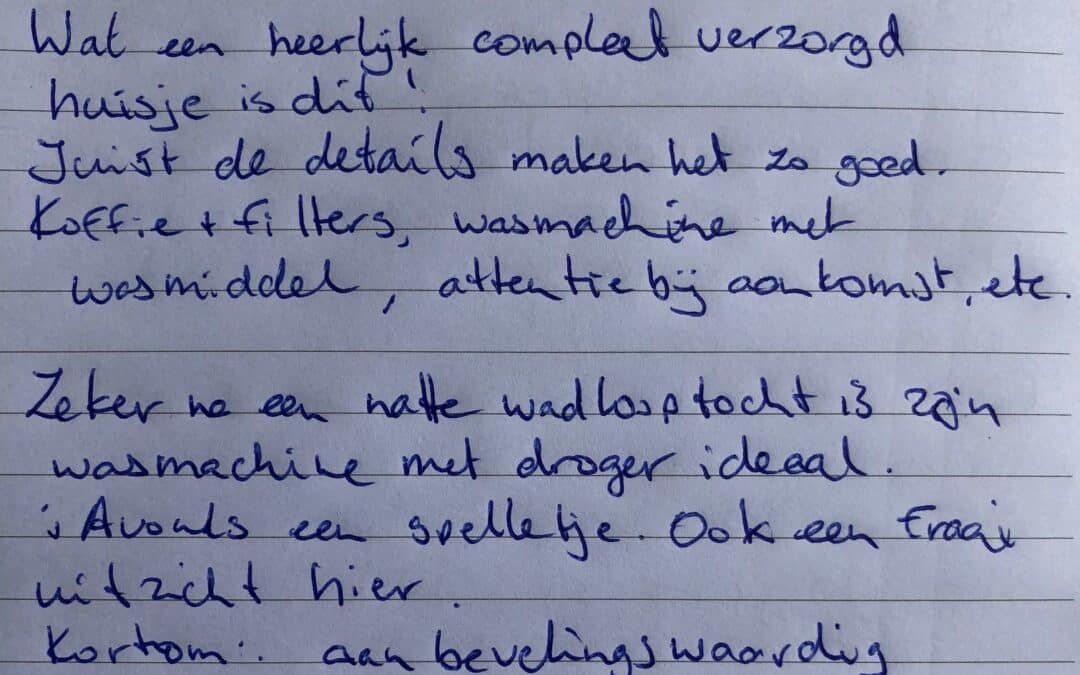 Wat een heerlijk compleet verzorgd
huisje is dit!
Juist de details maken het zo goed.
Koffie + filters, wasmachine met
wasmiddel, attentie bij aankomst, etc.
Zeker na een natte wadlooptocht is zo'n
wasmachine met droger ideaal.
's Avonds een spelletje. Ook een fraai
uitzicht hier.
Kortom: aanbevelingswaardig